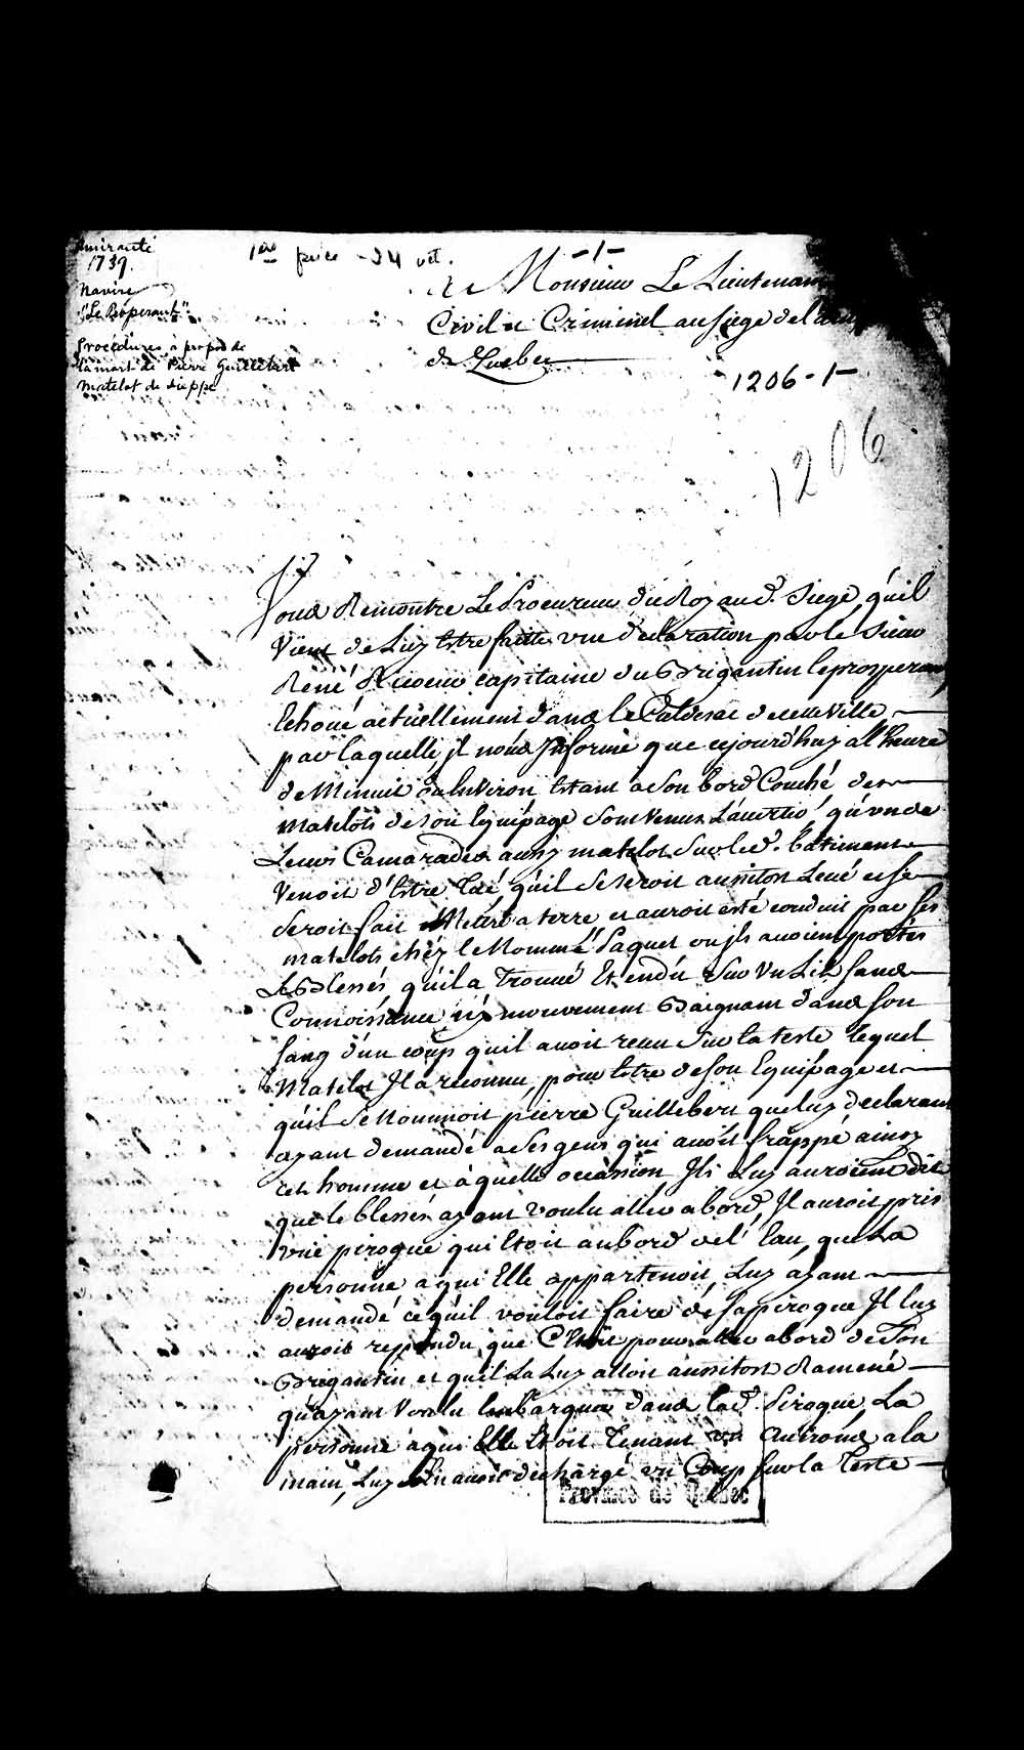 Amirauté
1739.
Navire
"Le Prosperant"
Procédures à propos de
la mort de Pierre Guillebert
matelot de dieppe
1ère pièce - 24 oct.
-1-
A Monsieur Le Lieutenant
Civil et Criminel au siege de
de Quebec
1206-1-
1206
Vous Remontre Le Procureur du Roy aud. Siege, qu'il
Vient de Luy Estre faitte une declaration par le Sieur
René capitaine du Brigantin le prosperant,
Echoué actuellement dans le Culdesac de cette Ville
par laquelle il nous Informe que cejourd'huy a l'heure
de Minuit ou Environ Estant a son bord Couché des
matelots de son Equipage sont Venus L'avertir qu'un de
Leurs Camarades aussy matelot sur led. bâtiment
Venoit d'Estre Tué qu'il se seroit aussitost Levé et se
seroit fait Mettre a terre et auroit esté conduit par ses
matelots chéz le Nommé Paquet ou ils avoient portés
Le Blessés qu'il a Trouvé Etendu sur Un Lit sans
Connoissance ny mouvement Baignant dans son
sang d'un coup qu'il avoit receu sur la teste lequel
Matelot Il a reconnu, pour Estre de son Equipage et
qu'il se Nommoit pierre Guillebert que luy declarant
ayant demandé a ses gens qui avoit frappé ainsy
cet homme et à quelle occasion Ils Luy auroient dit
que le blessés ayant voulu aller a bord, Il auroit pris
une pirogue qui Etoit au bord de l'Eau, que La
personne a qui Elle appartenoit, Luy ayant
demandé ce qu'il vouloit faire de sa pirogue Il luy
auroit repondu que C'Etoit pour aller a bord de son
Brigantin et qu'il La Luy alloit aussitost Ramené
qu'ayant Voulu Embarquer dans lad. Pirogue La
personne a qui Elle Etoit Tenant un Aviron a la
main, Luy En auroit dechargé un Coup sur la Teste
Province de Québec